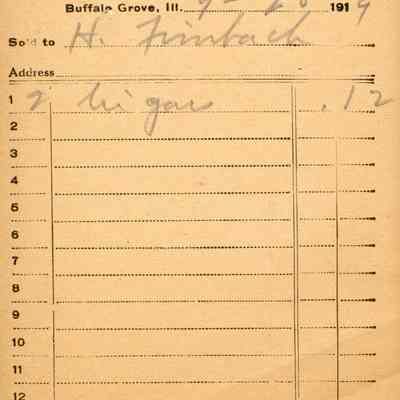 Buffalo Grove, Ill. 1919
Sold to H. Firnbach
Address
1 2 Cigars .12
2
3
4
5
6
7
8
9
10
11
12